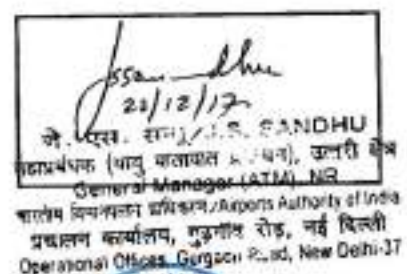 22/12/17
जे. एस. /J.S. SANDHU
महाप्रबंधक (वायु यातायात), उत्तरी क्षेत्र
General Manager (ATM), NR
भारतीय विमानपत्तन प्राधिकरण/Airports Authority of India
प्रचालन कार्यालय, गुड़गाँव रोड, नई दिल्ली
Operational Offices, Gurgaon Road, New Delhi-37